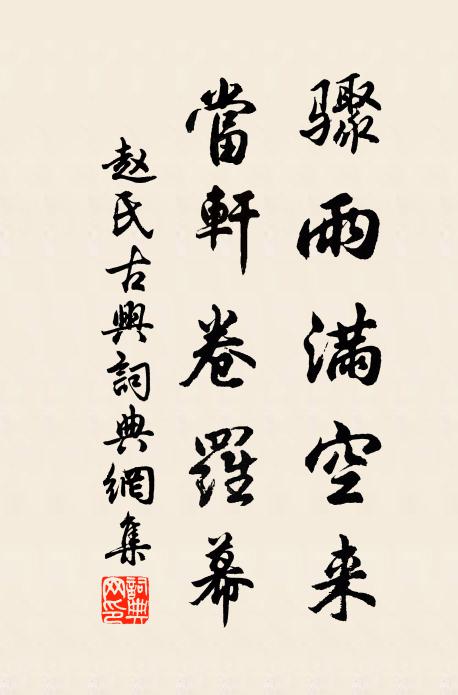 骤雨满空来
當軒卷羅幕
赵氏古典詞典網集
詞典网印